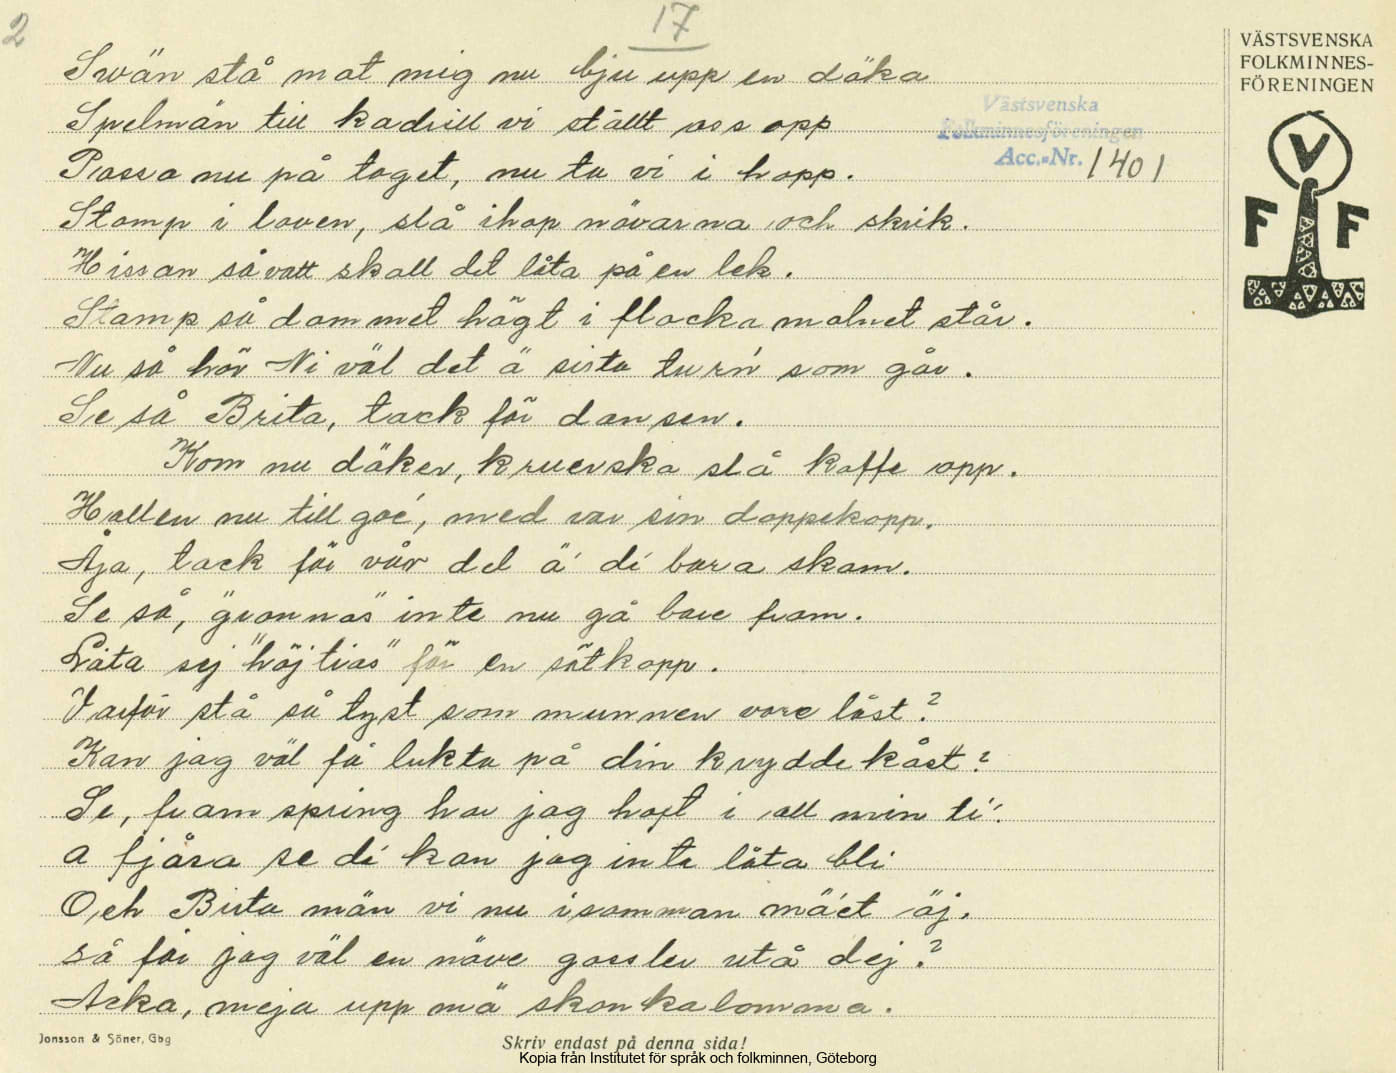 2
17
Swän stå mat mig nu bju upp en däka
Spelmän till kadrill vi ställt oss opp
Passa nu på taget, nu ta vi i hopp.
Stamp i loven, slå ihop nävarna och skrik.
Hissan såvatt skall det låta på en lek.
Stamp så dammet högt i flacka molnet står.
Nu så hör Ni väl det ä sista turn' som går.
Se så Brita, tack för dansen.
Kom nu däker, kruerska slå kaffe opp.
Hallen nu till goé, med var sin doppekopp.
Åja, tack för vår del ä' di bara skam.
Se så, "gronnas" inte nu gå bare fram.
Låta sej "höjtias" för en sötkopp.
Varför stå så tyst som munnen vore låst?
Kan jag väl få lukta på din kryddekåst?
Se, fram spring har jag haft i all min ti".
a fjåsa se di kan jag inte låta bli
Och Brita män vi nu isamman mä'et äj.
så får jag väl en näve gossler utå dej?
Acka, meja upp mä skonkalomma.
Västsvenska
Folkminnesföreningen
Acc.-Nr. 1401
VÄSTSVENSKA
FOLKMINNES-
FÖRENINGEN
V
F F
Jonsson & Söner, Gbg
Skriv endast på denna sida!
Kopia från Institutet för språk och folkminnen, Göteborg